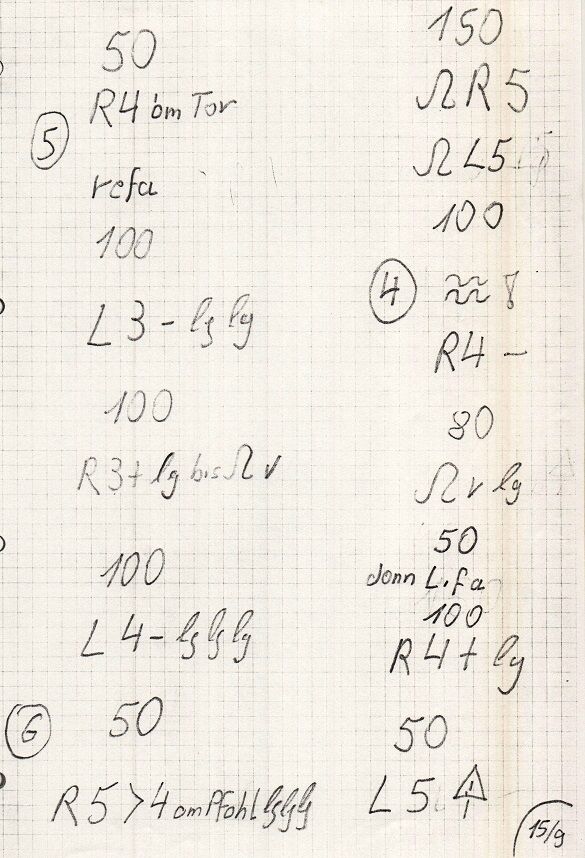 50
⑤ R4 am Tor
refa
100
L3- lg lg
100
R3+ lg bis Ω v
100
L4- lg lg lg
⑥ 50
R5>4 am Pfahl lg lg lg
150
Ω R5
Ω L5
100
④ ≈≈
R4 -
80
Ω v lg
50
dann L.fa
100
R4+ lg
50
L5
15/9